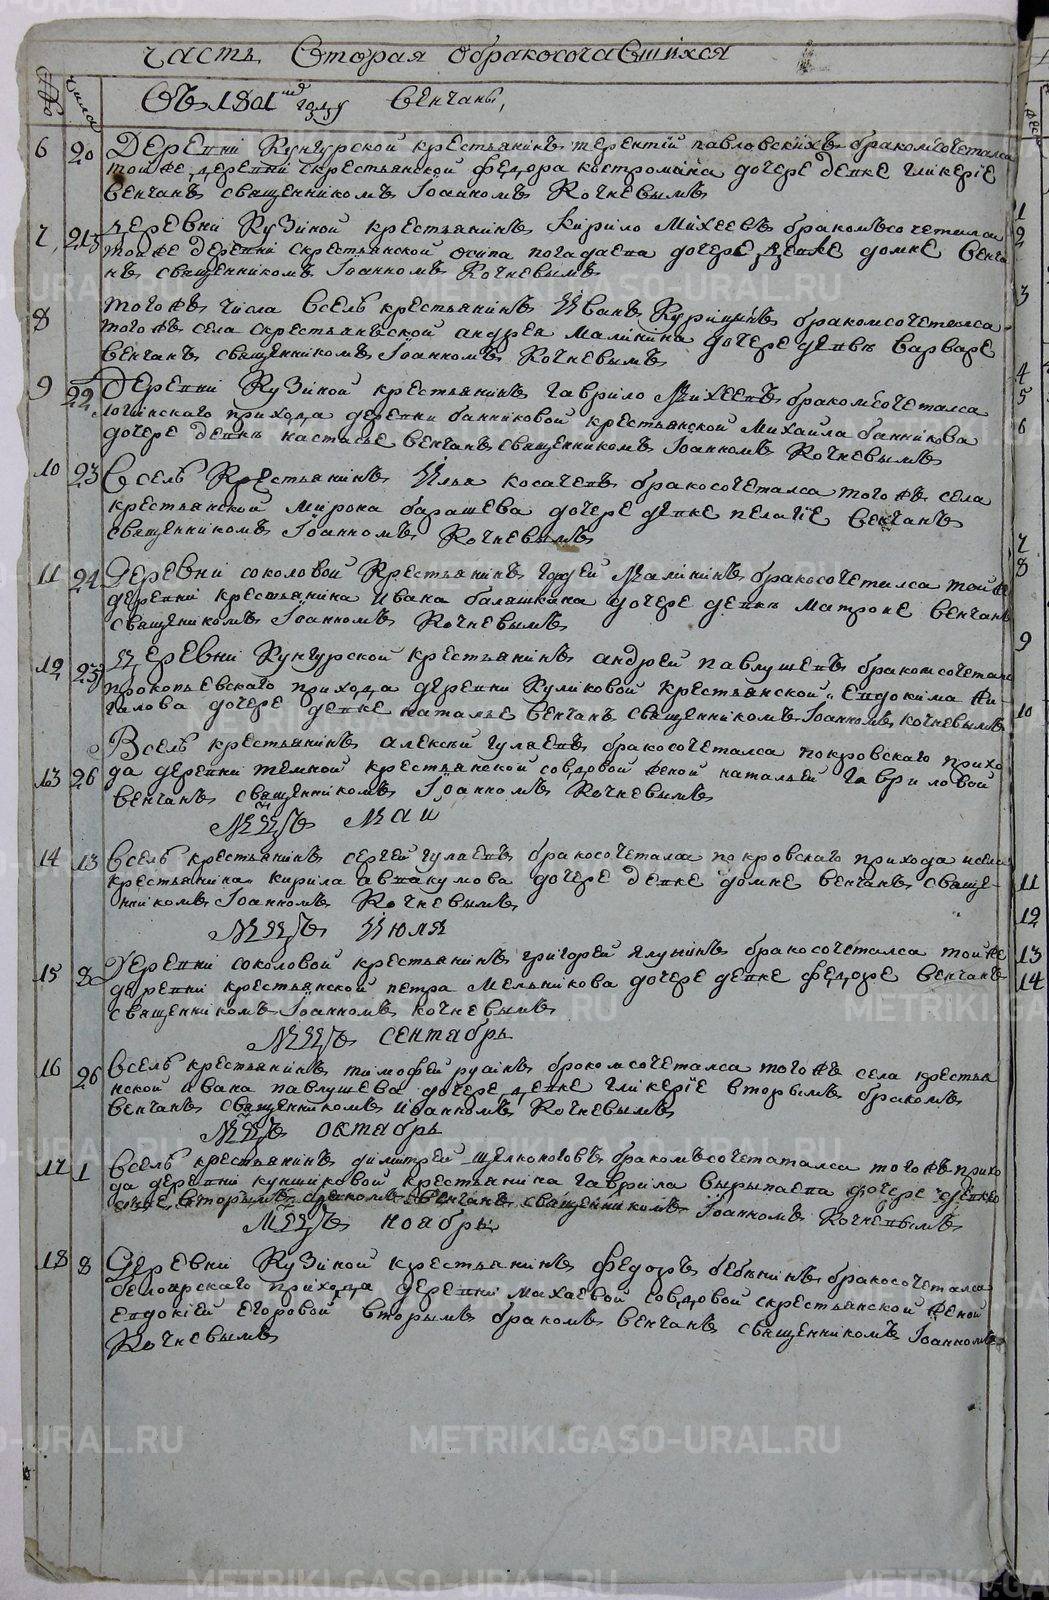 часть вторая обракосочавшихся
№ числа Въ 1801мъ году венчаны,
6 20 Деревни Кунгурской крестьянинъ терентiй павловскихъ бракомсочетался
тойже деревни скрестьянской федора костромина дочере девке гликерiе
венчанъ священникомъ Iоанномъ Кочневымъ
7 21 деревни Кузiной крестьянинъ Кирило Михеевъ бракомъсочетался
тойже деревни скрестьянской осипа погадаева дочере девке домне венча
нъ священникомъ Iоанномъ Кочневымъ
8 тогожъ числа Вселѣ крестьянинъ Иванъ бракомсочетался
тогожъ села скрестьянской андрея Малинина дочере девкѣ варваре
венчанъ священникомъ Iоанномъ Кочневымъ
9 22 Деревни Кузiной крестьянинъ гаврило Михеевъ бракомсочетался
логинскаго прихода деревни банниковой крестьянской Михаила банникова
дочере девкѣ настасье венчанъ священникомъ Iоанномъ Кочневымъ
10 23 Вселѣ Крестьянинъ Илья косачевъ бракосочетался тогожъ села
крестьянской Мирона барашева дочере девке пелагiе венчанъ
священникомъ Iоанномъ Кочневымъ
11 24 Деревни соколовой Крестьянинъ Малининъ бракосочетился тойже
деревни крестьянина ивана балашкина дочере девкѣ матроне венчанъ
священикомъ Iоанномъ Кочневымъ
12 25 Деревни Кунгурской крестьянинъ андрей павлушевъ бракомсочетался
прокопьевскаго прихода деревни Куликовой крестьянской евдокима жи
галова дочере девке наталье венчанъ священникомъ Iоанномъ кочневымъ
13 26 Вселѣ крестьянинъ алексѣй гулаевъ бракосочетался покровскаго прихо
да деревни темной крестьянской совдовой женой натальей гавриловой
венчанъ священникомъ Iоанномъ Кочневымъ
Мцъ Маи
14 13 вселѣ крестьянинъ сергей гулаевъ бракосочетался покровскаго прихода исела
крестьянина кирила авакумова дочере девке домне венчанъ свяще-
нникомъ Iоанномъ Кочневымъ
Мцъ Июля
15 8 Деревни соколовой крестьянинъ григорей бракосочетался тойже
деревни крестьянской петра Мельникова дочере девке федоре венчанъ
священикомъ Iоанномъ кочневымъ
Мцъ сентябрь
16 26 вселѣ крестьянинъ тимофей бракомсочетался тогожъ села крестья
нской ивана павлушева дочере девке гликерiе вторымъ бракомъ
венчанъ священникомъ иванномъ Кочневымъ
Мцъ октябрь
17 1 вселѣ крестьянинъ димитрей щелконоговъ бракомъсочетатался тогожъ прихо
да деревни крестьянина гаврила дочере девке
вторымъ бракомъ венчанъ священникомъ Iоанномъ Кочневымъ
Мцъ ноябрь
18 8 Деревни Кузiной крестьянинъ Федоръ бракосочетался
белоярскаго прихода деревни совдовой скрестьянской женой
евдокiей егоровой вторымъ бракомъ венчанъ священникомъ Iоанномъ
Кочневымъ
METRIKI.GASO-URAL.RU